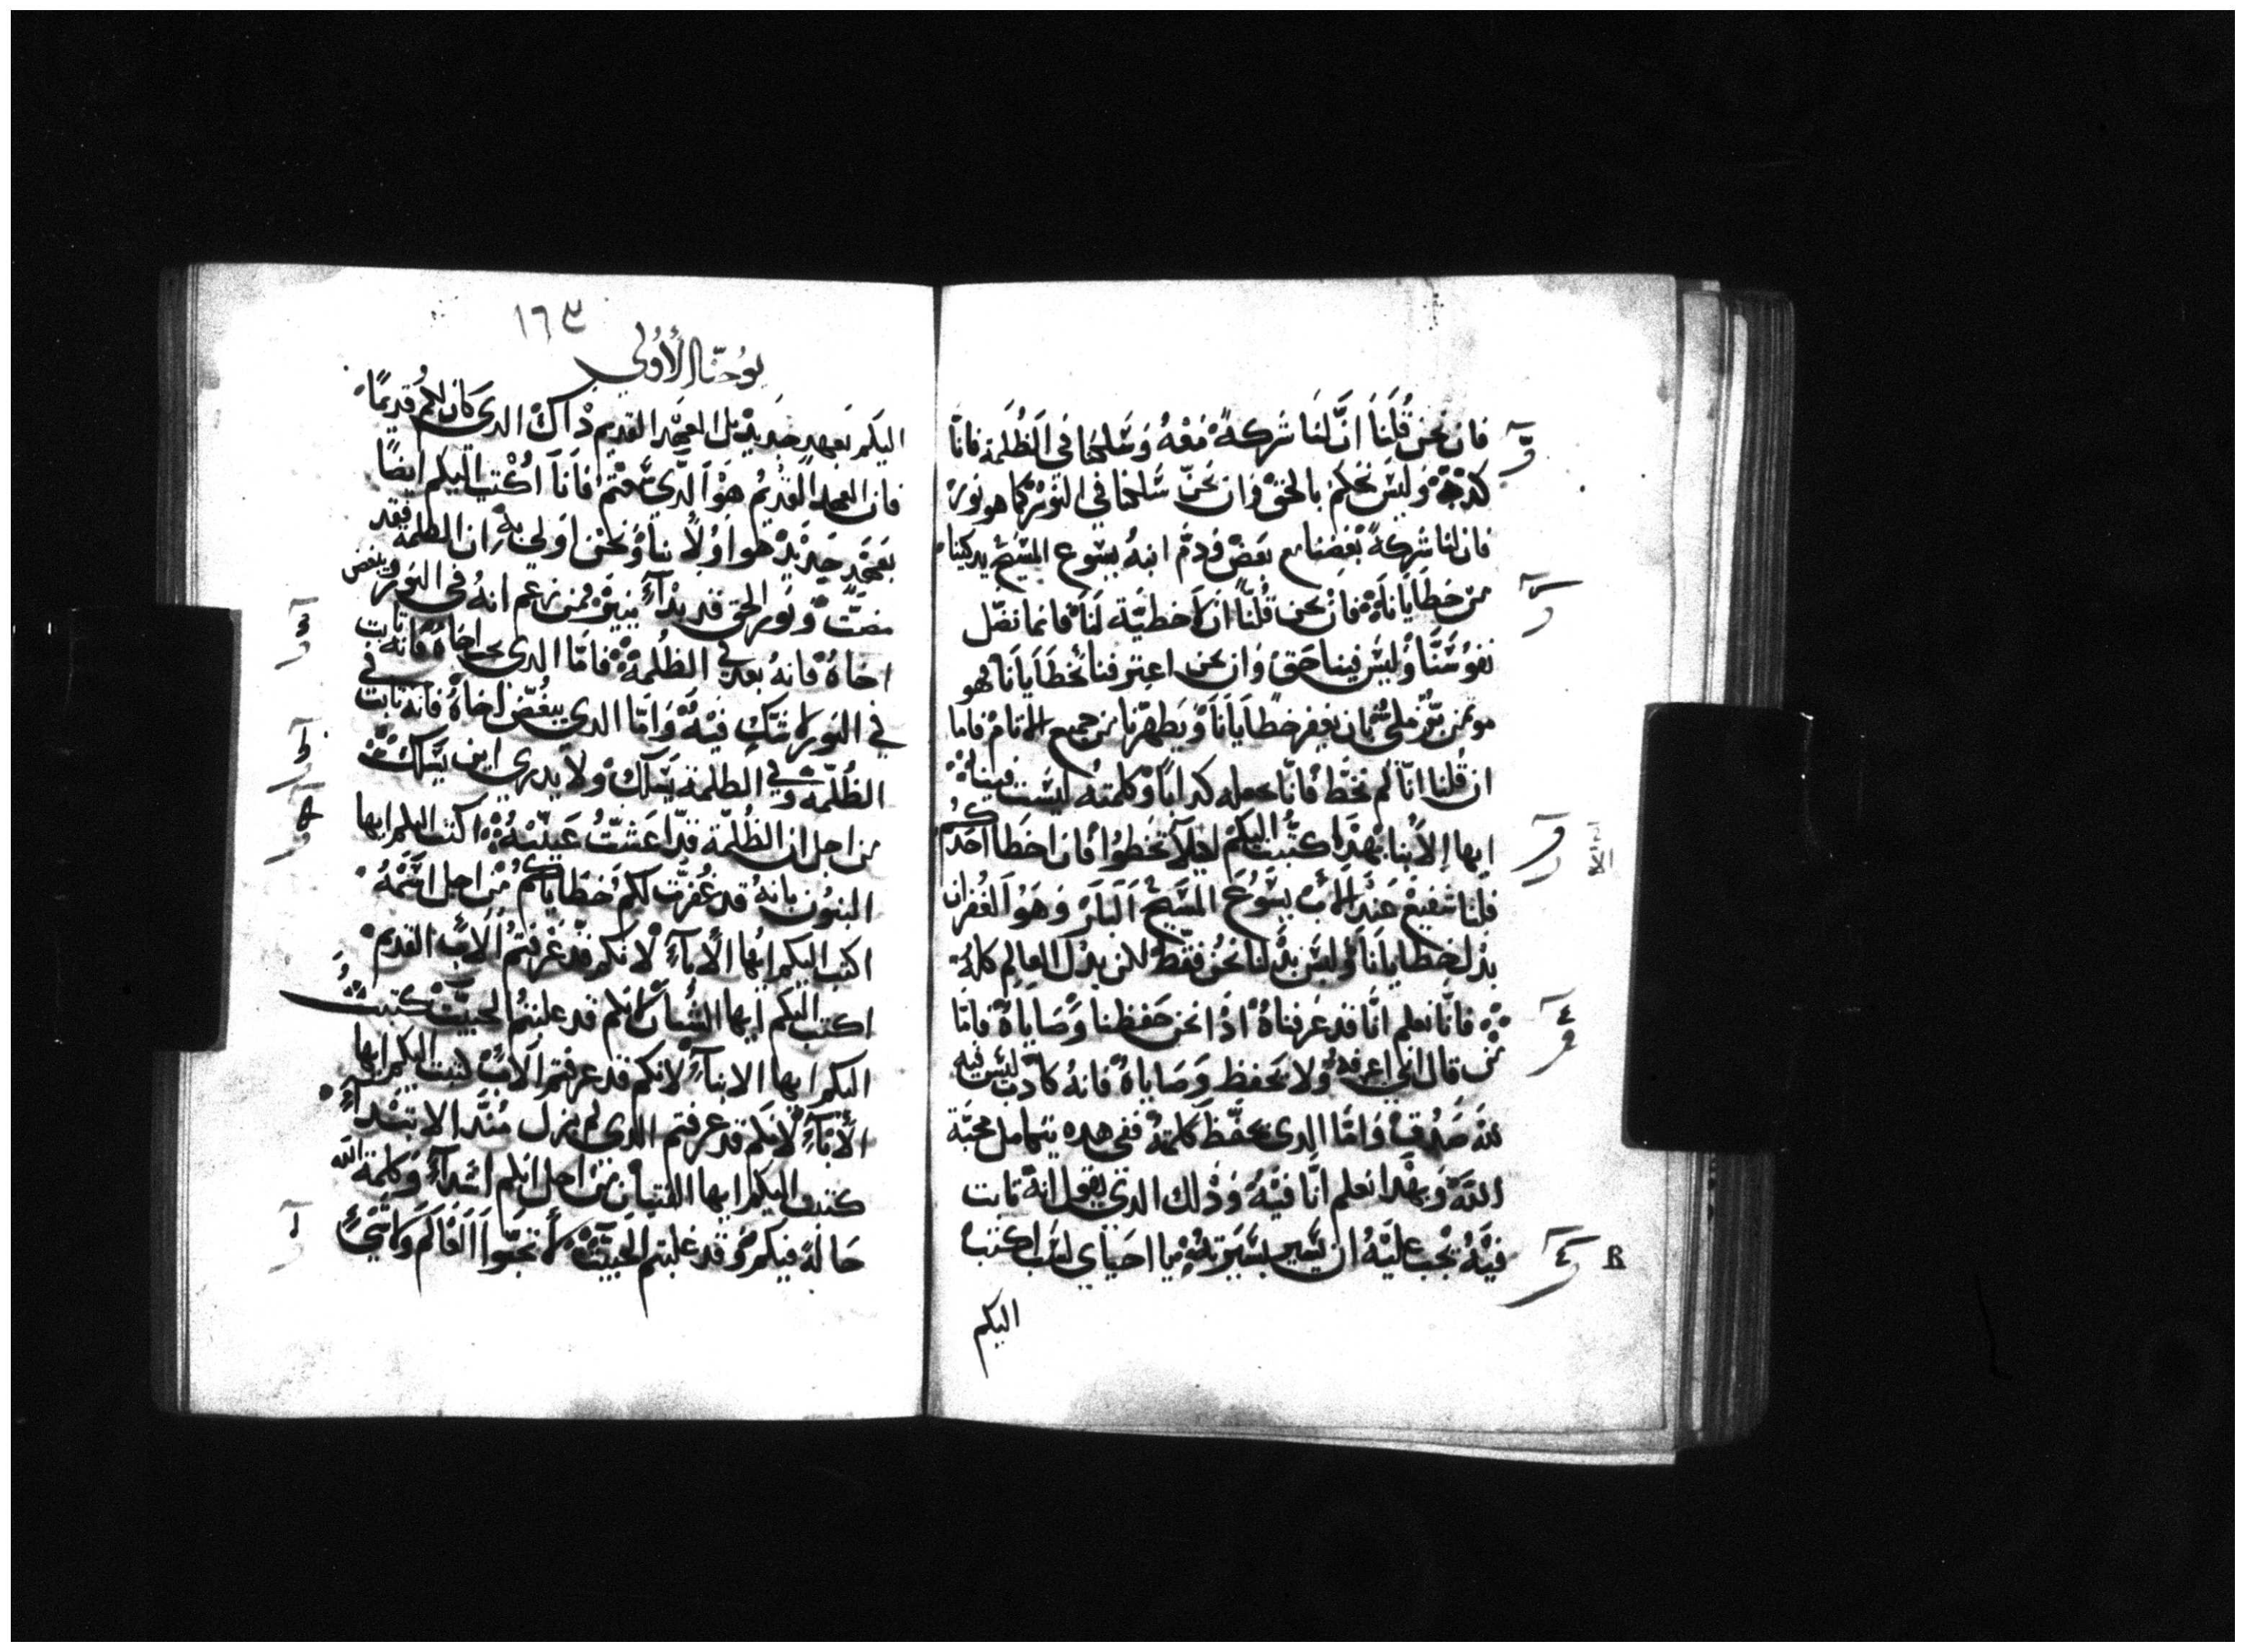 فان نحن قُلنَا انَّ لنَا شركةً مَعْهُ وَسَلكنا في الظُلمة فانّا
كدبه وَليسَ نحكم بالحَق وَان نحنّ سَلكنا في النوُر كما هو نوُر
فان لنا شركةً بَعْضنا مع بَعضْ وَدمّ ابنهُ يسوع المسَيحْ يدكينا
منَ خطَايَانَا فان نحن قُلنّا ان لا خطيّة لنَا فانما نضّل
نفوسَنَّا وَليسَ فينا حَق وَان نحن اعترفنا بخطَايَانَا فهو
موتمن بَّر ملي بان يغفر خطَايَانَا وَيَطهرّنا من جميع الاتامْ فاما
ان قُلنا انّا لم نخّط فانّا نجعله كدابًا وَكلمتهُ ليسَت فينا
ايها الاَبنا بهَدَا كتبُت اليكمْ لئِلاَ تخَطوُا فان اخطَا احَدُكُم
فلنا شفيعْ عنَد الاَبْ يسَوُعَ المسَّيحْ اَلبَار وَهَوُ اَلغُفرَان
بدل خطايانَا وَليسَ بدْلنا نحنُ فقط لكن بدل العالم كلهُ
فانّا نعلم انَّا قد عَرفناهُ ادْا نحن حَفظنا وَصَايَاهُ فامّا
من قال اني اعرفهُ وَلا يحَفظ وَصَاياهُ فانهُ كادبْ ليسَ فيه
لله صَدُق وَامَّا الدي يحَفّظ كلمتهُ ففي هده يتكامل محبّة
اللهّ وَبهَدا نعلم انَّا فيْهُ وَدْلك الدَي يقول انهُ تابت
فيَّهُ يجْب عليْهُ ان يسّير بسَيرَتهُ يا احبَاي لسَت اكتبُ
اليكم
١٦٤
يوُحنّا الأُولي
اليكم بَعهدٍ جَديدْ بل العَهَد القديم دْاكْ الدي كان لكم قديمًا
فان العَهد القديُم هوَ اَلدّي سَمعتم فانَا اَكُتب اليكم ايضًا
بَعهَدٍ جَديْد هوا اوَلاً بنا وَنحن اوَلي بهُ ان الظلمة فقد
مضَتّ وَنوُر الحق قد بدْآءَ يَنيرَ فمن زعم انهُ في النوُر وَيبغض
اخَاهُ فانهُ بعَد في الظلُمة فامَّا الدي يحب اخاهُ فانهُ تابت
في النوُر لا شَكٍ فيْهُ وَامّا الدي يبغُضّ اخاهُ فانهُ تابّت في
الظُلمّة وَفي الظلمة يسَلكْ وَلا يدري اين يسَلكْ
من اجل ان الظُلمّة قدّ اعشَتُ عَينْيهُ اكتب اليكم ايها
البنوُن بانهُ قد غُفرَّت لكم خَطاياكُم منْ اجل اسَمهُ
اكتب اليكم ايُها الاَبآءِ لانكم قد عَرفتمُ اَلاَبَّ القديم
اكتب اليكم ايها الشُبان لانكم قد غلبتمُ الخبيتّ كتبتُ
اليكم ايها الابنآءِ لانكم قد عرفتم اَلاَبّ كتبت اليكم ايها
الأبآءِ لانكم قد عرفتم الدي لم يزل مُندَّ الابتَدآءِ
كتبت اليكم ايها الفتيان من اجل انكم اشدآءِ وَكلمة الله
حَالة فيكم وَقد غلبتم الخَبيتْ لا تحبّوا اَلعَالَم وَلا شَيْ